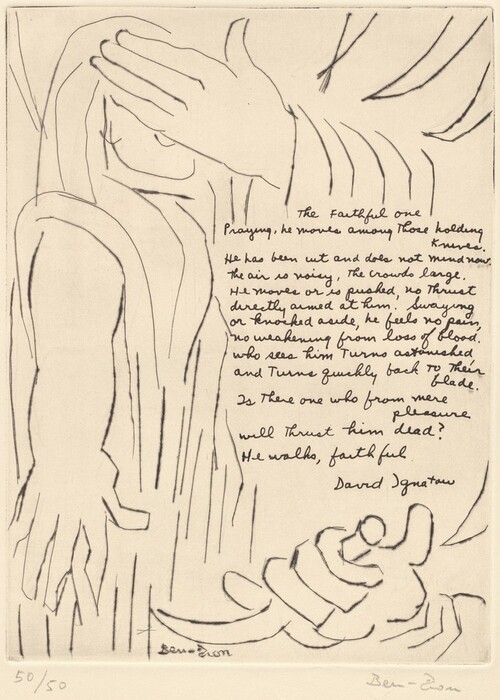 The Faithful one
Praying, he moves among those holding
Knives.
He has been cut and does not mind now.
The air is noisy, The crowds large.
He moves or is pushed, no Thrust
directly aimed at him. Swaying
or knocked aside, he feels no pain,
no weakening from loss of blood.
who sees him Turns astonished
and Turns quickly back To Their
blade.
Is There one who from mere
pleasure
will Thrust him dead?
He walks, faithful
David Ignatow
Ben-Zion
50/50
Ben-Zion